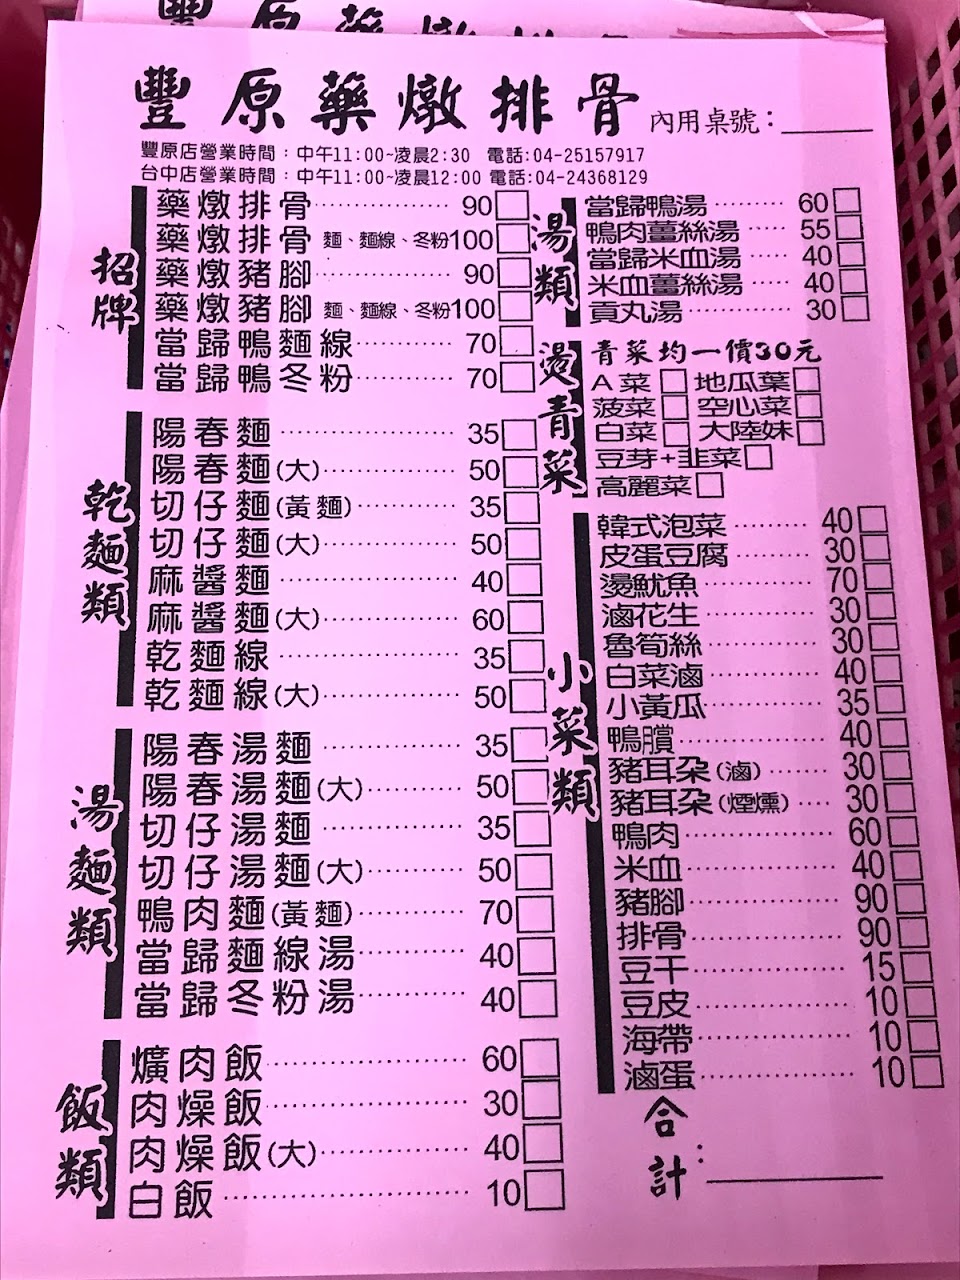 豐原藥燉排骨
豐原藥燉排骨 內用桌號：
豐原店營業時間：中午11:00~凌晨2:30 電話:04-25157917
台中店營業時間：中午11:00~凌晨12:00 電話:04-24368129
招牌
藥燉排骨 90
藥燉排骨 麵、麵線、冬粉 100
藥燉豬腳 90
藥燉豬腳 麵、麵線、冬粉 100
當歸鴨麵線 70
當歸鴨冬粉 70
乾麵類
陽春麵 35
陽春麵(大) 50
切仔麵(黃麵) 35
切仔麵(大) 50
麻醬麵 40
麻醬麵(大) 60
乾麵線 35
乾麵線(大) 50
湯麵類
陽春湯麵 35
陽春湯麵(大) 50
切仔湯麵 35
切仔湯麵(大) 50
鴨肉麵(黃麵) 70
當歸麵線湯 40
當歸冬粉湯 40
飯類
爌肉飯 60
肉燥飯 30
肉燥飯(大) 40
白飯 10
湯類
當歸鴨湯 60
鴨肉薑絲湯 55
當歸米血湯 40
米血薑絲湯 40
貢丸湯 30
燙青菜
青菜均一價30元
A菜 地瓜葉
菠菜 空心菜
白菜 大陸妹
豆芽+韭菜
高麗菜
小菜類
韓式泡菜 40
皮蛋豆腐 30
燙魷魚 70
滷花生 30
魯筍絲 30
白菜滷 40
小黃瓜 35
鴨臏 40
豬耳朵(滷) 30
豬耳朵(煙燻) 30
鴨肉 60
米血 40
豬腳 90
排骨 90
豆干 15
豆皮 10
海帶 10
滷蛋 10
合計：